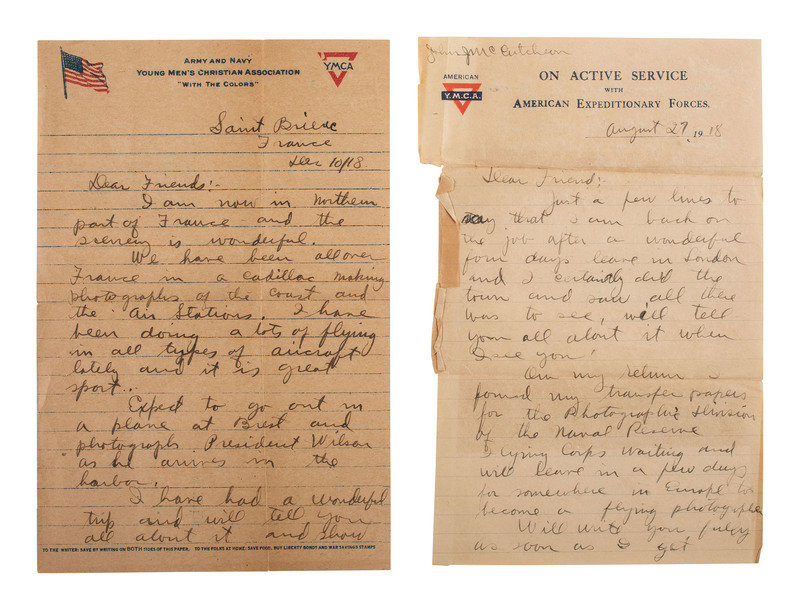 ARMY AND NAVY
YOUNG MEN'S CHRISTIAN ASSOCIATION
"WITH THE COLORS"
YMCA
Saint Brieuc
France
Dec 10/18
Dear Friends:-
I am now in Northern
part of France and the
scenery is wonderful.
We have been all over
France in a Cadillac making
photographs of the coast and
the Air Stations. I have
been doing a lots of flying
in all types of aircraft
lately and it is great
sport..
Expect to go out in
a plane at Brest and
photograph President Wilson
as he arrives in the
harbor.
I have had a wonderful
trip and will tell you
all about it and show
TO THE WRITER: SAVE BY WRITING ON BOTH SIDES OF THIS PAPER. TO THE FOLKS AT HOME: SAVE FOOD, BUY LIBERTY BONDS AND WAR SAVINGS STAMPS
John J McCutcheon
AMERICAN
Y.M.C.A.
ON ACTIVE SERVICE
WITH
AMERICAN EXPEDITIONARY FORCES.
August 27, 1918
Dear Friend:-
Just a few lines to
say that I am back on
the job after a wonderful
four days leave in London
and I certainly did the
town and saw all there
was to see, will tell
you all about it when
I see you!
On my return I
found my transfer papers
for the Photographic Division
of the Naval Reserve
Flying Corps waiting and
will leave in a few days
for somewhere in Europe to
become a flying photographer
Will write you fully
as soon as I get